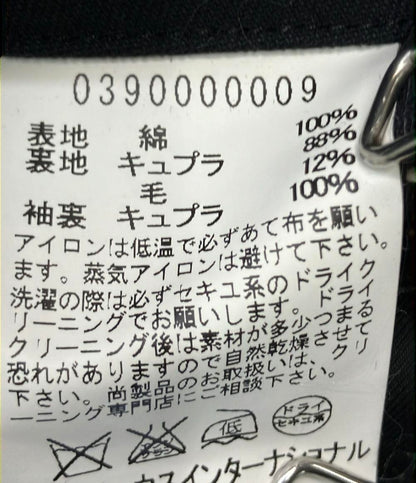 0390000009
表地 綿 100%
裏地 キュプラ 88%
毛 12%
袖裏 キュプラ 100%
アイロンは低温で必ずあて布を願い
ます。蒸気アイロンは避けて下さい。
洗濯の際は必ずセキユ系のドライク
リーニングでお願いします。ドライ
クリーニング後は素材が多少つまる
恐れがありますので自然乾燥させて
下さい。尚製品のお取扱いは、クリ
ーニング専門店にご相談下さい。
低
ドライ
セキユ系
スインターナショナル